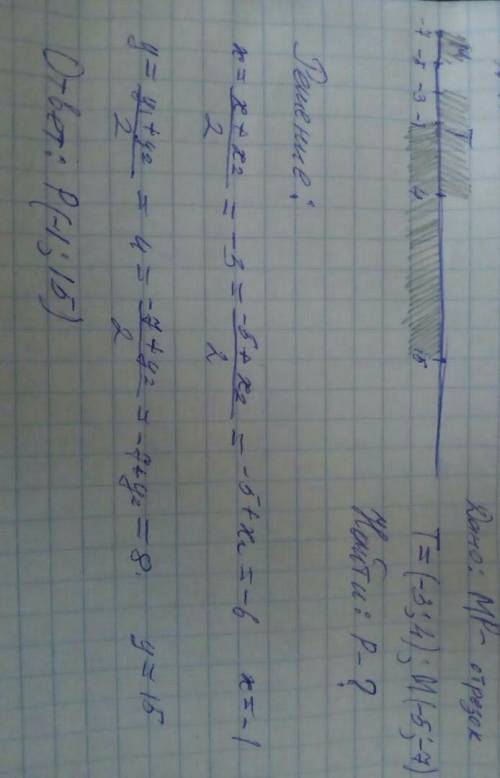 Дано: МР - отрезок
Т = (-3; 4); М(-5; -7)
Найти: Р - ?
М Т
-7 -5 -3 -1 4 15
Решение:
x = x + x2 / 2 = -3 = -5 + x2 / 2 = -5 + x2 = -6 x = -1
y = y1 + y2 / 2 = 4 = -7 + y2 / 2 = -7 + y2 = 8. y = 15
О-вет: Р(-1; 15)